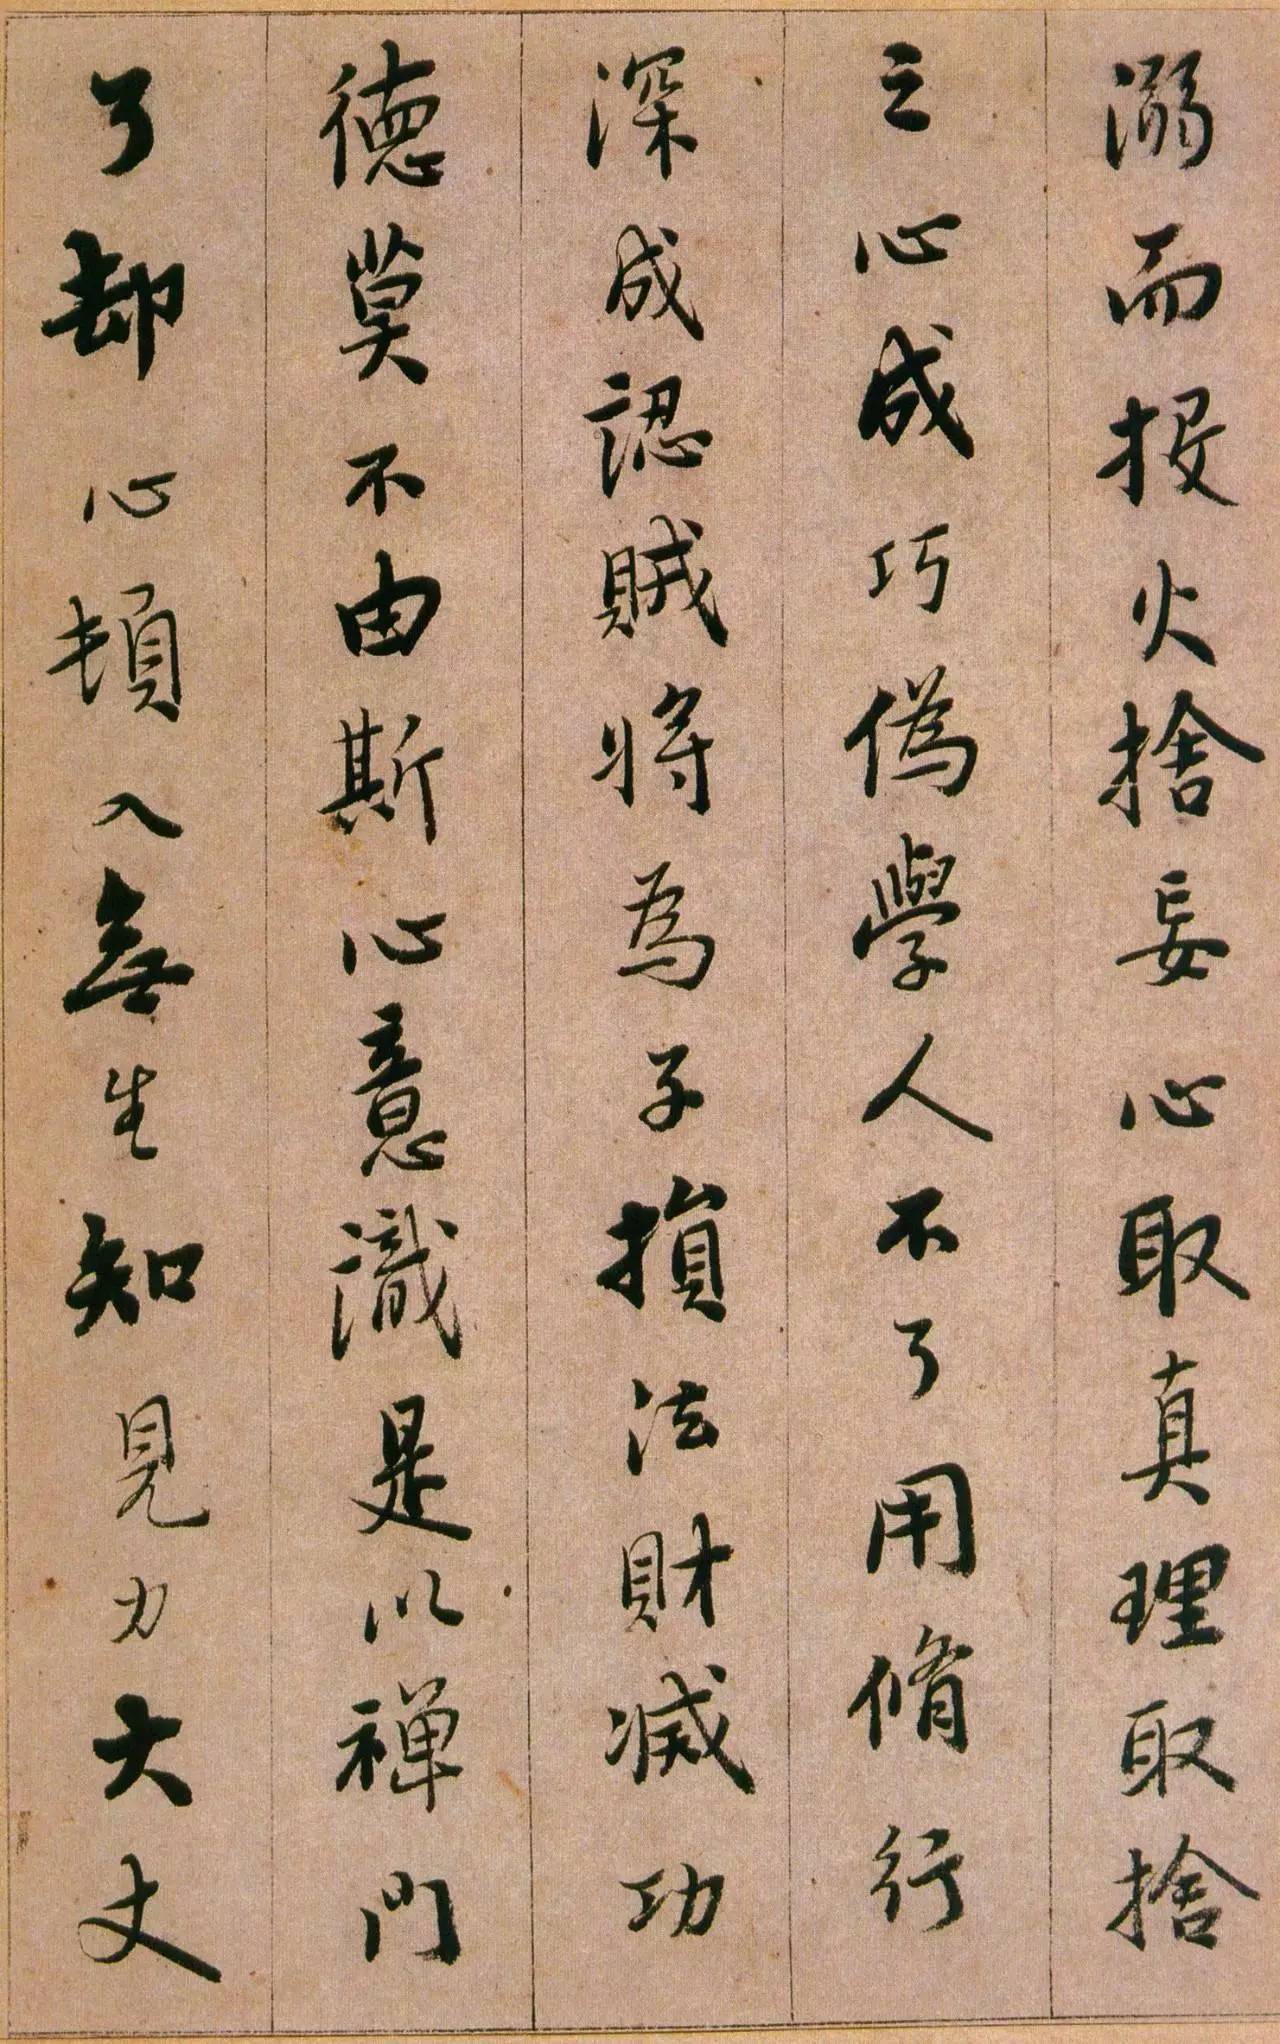 溺而投火捨妄心取真理取捨
之心成巧偽學人不了用脩行
深成認賊將為子損法財滅功
德莫不由斯心意識是以禪門
了却心頓入無生知見力大丈